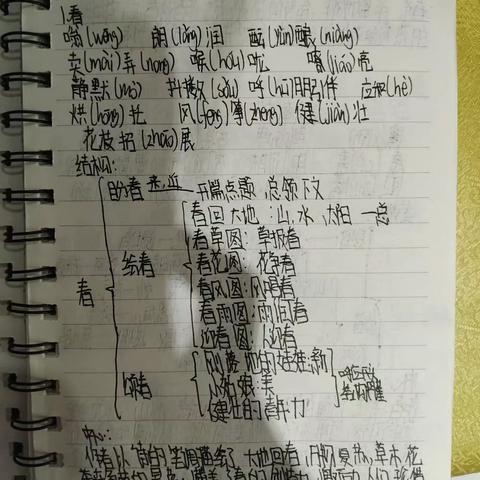 1.春
嗡(wēng) 朗(lǎng)润 酝(yùn)酿(niàng)
卖(mài)弄(nong) 喉(hóu)咙 嘹(liáo)亮
静默(mò) 抖擞(sǒu) 呼(hū)朋引伴 应和(hè)
烘(hōng)托 风(fēng)筝(zheng) 健(jiàn)壮
花枝招(zhāo)展
结构:
盼春 来,近 开篇点题,总领下文
春回大地:山,水,太阳 总
春草图:草报春
绘春 春花图:花争春
春风图:风唱春
春 春雨图:雨润春
迎春图:人迎春
刚落地的娃娃:新
颂春 小姑娘:美
健壮的青年:力
中心:
作者以 的笔调描绘了大地回春,万物复苏,草木花